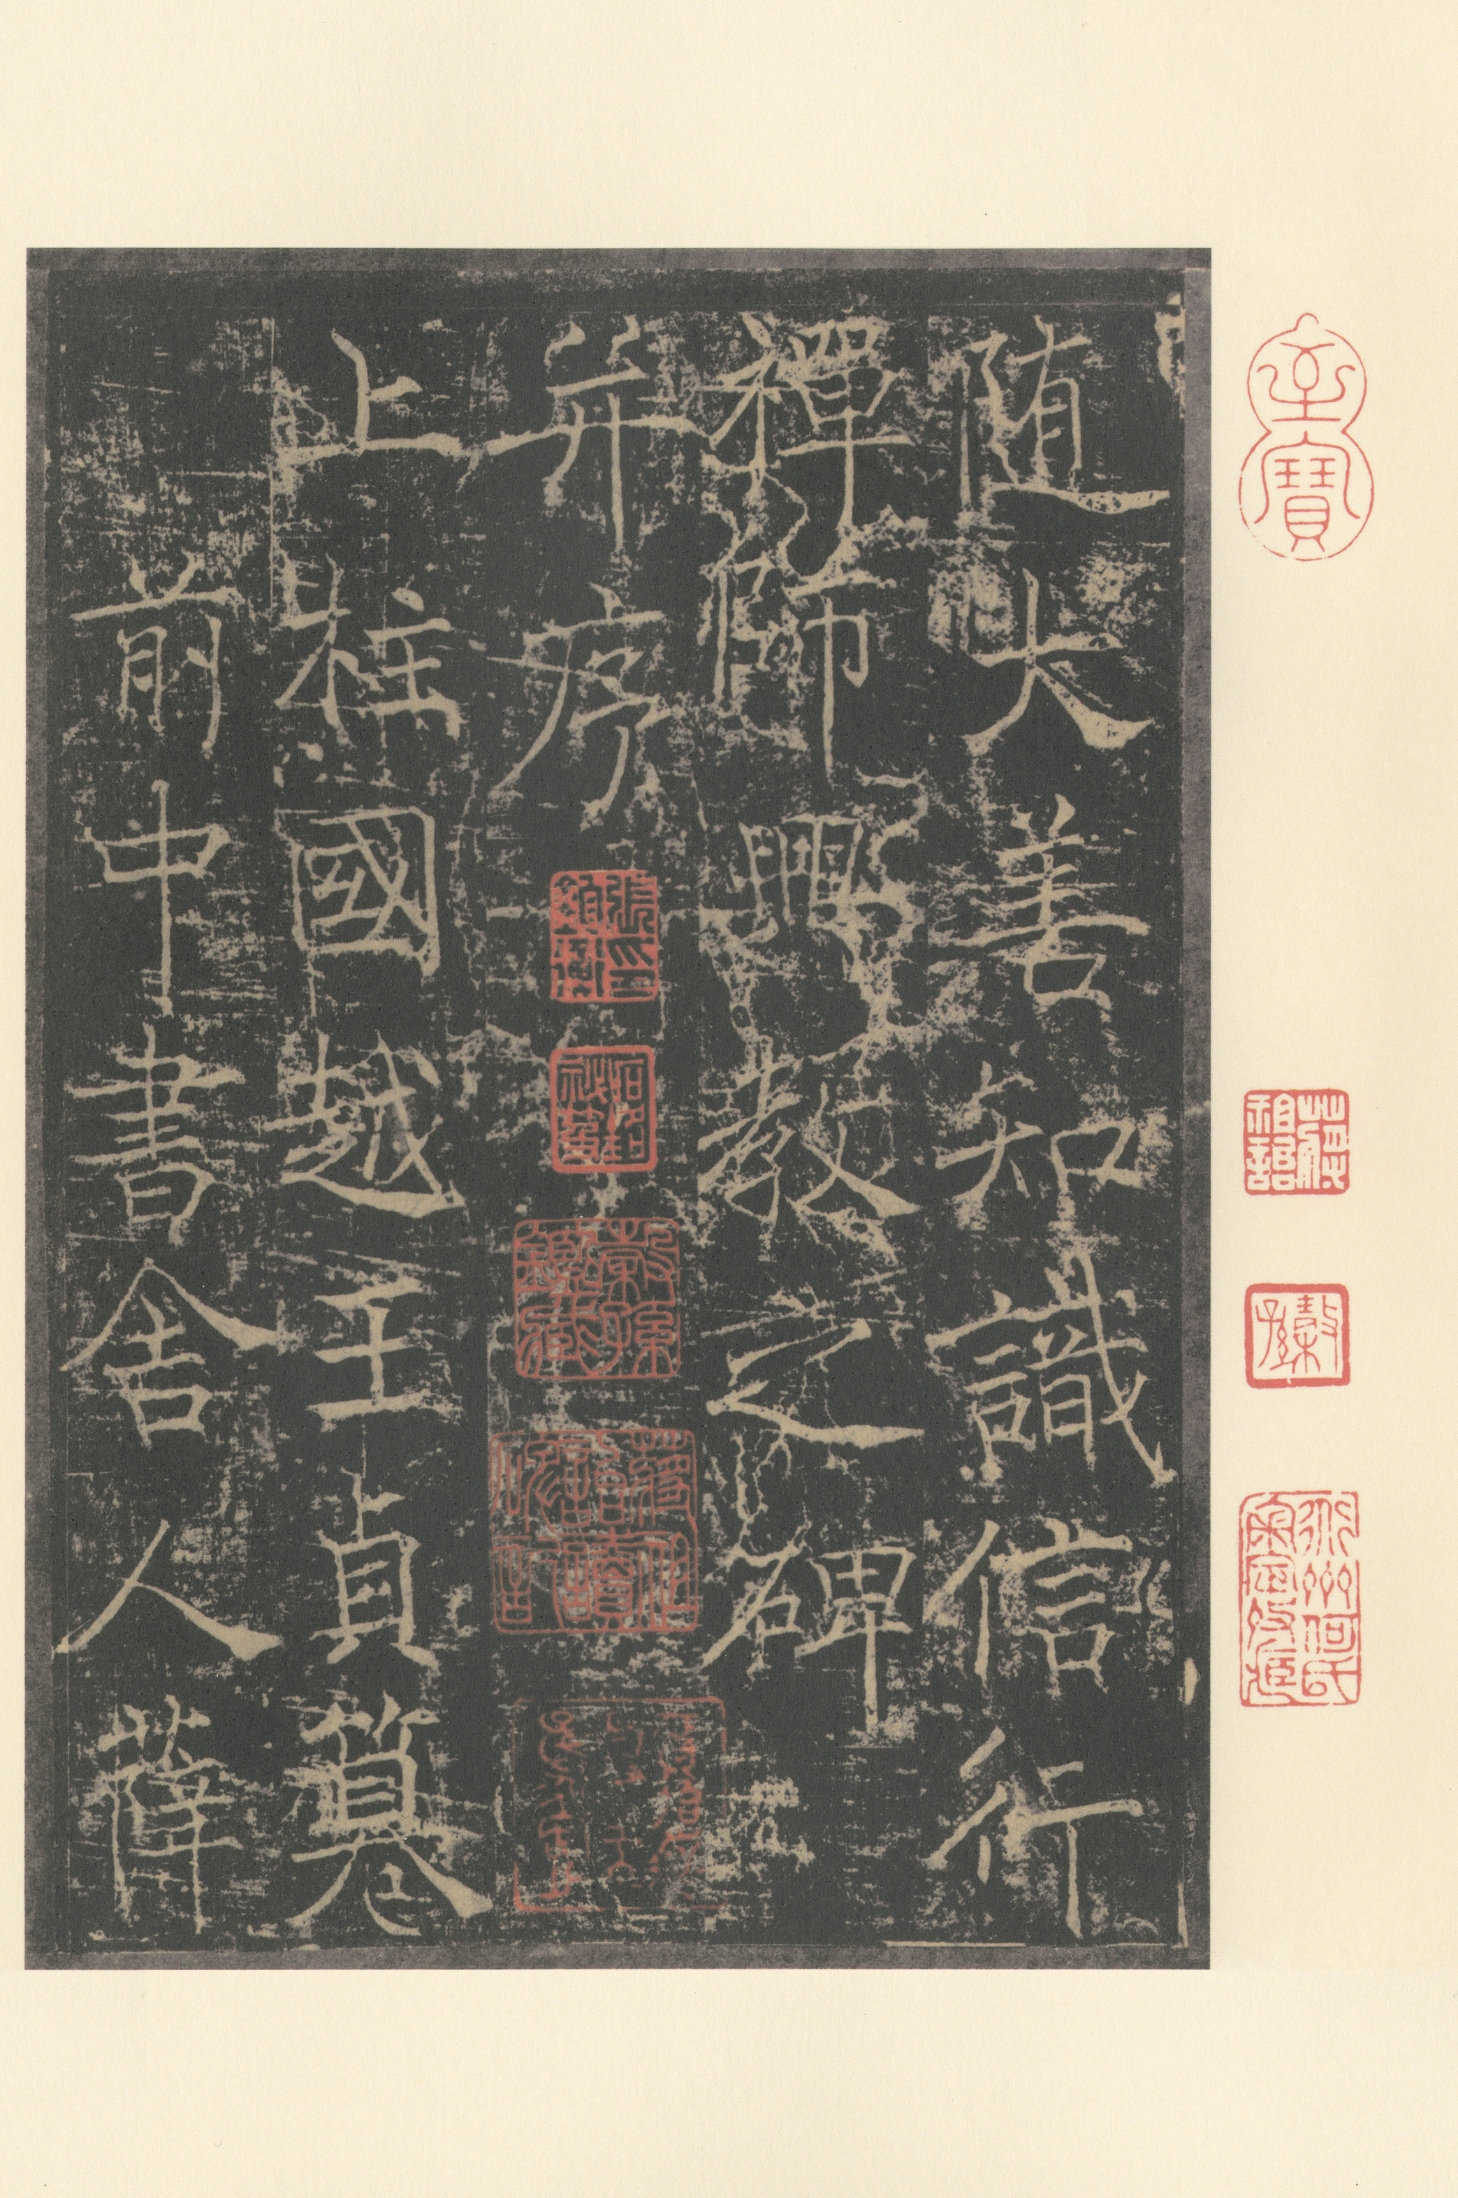 至寶
隨大善知識信行
禪師興教之碑
并序
上柱國越王貞撰
前中書舍人薛